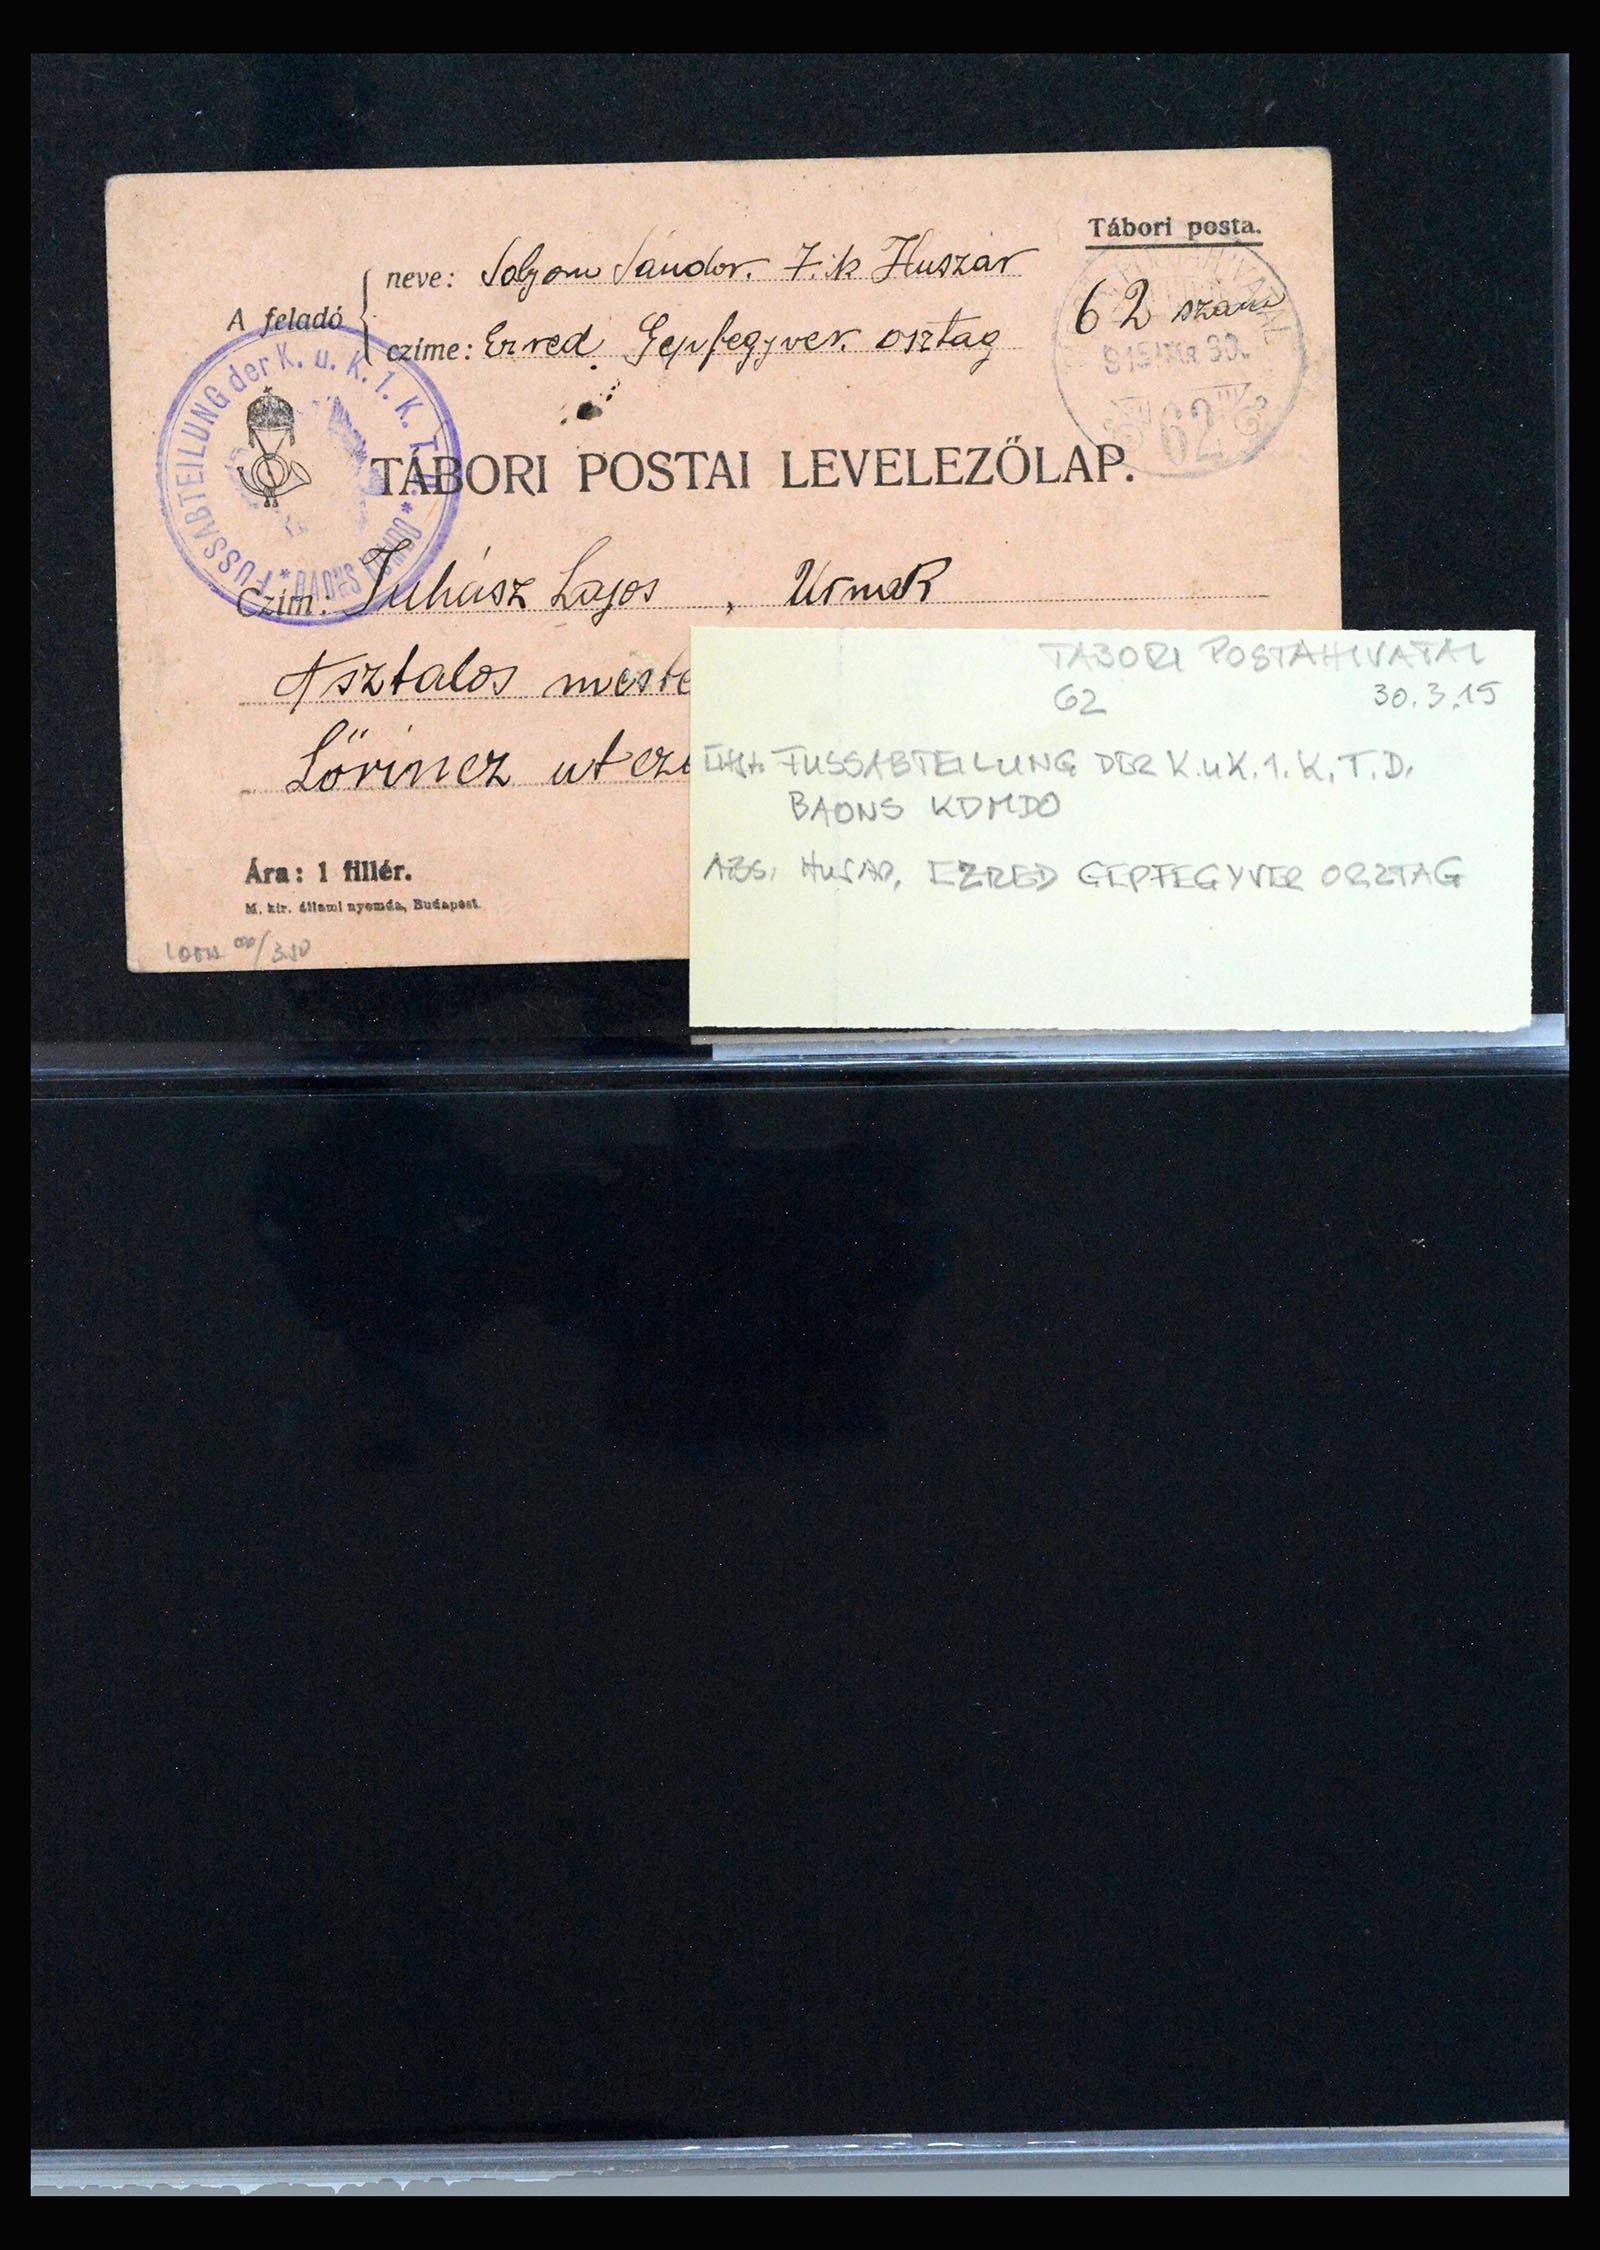 Tábori posta.
A feladó
neve: Solyom Sándor. 7. k Huszár
czime: Ezred. Gepfegyver. osztag
62 szam
915 MÁR 30.
62
FUSSABTEILUNG der K. u. K. 1. K. T. D.
* BAONS KOMDO *
TÁBORI POSTAI LEVELEZŐLAP.
Czim: Juhász Lajos, Urnak
Asztalos meste
Lőrincz utcza
Ára: 1 fillér.
M. kir. állami nyomda, Budapest.
TABORI POSTAHIVATAL
62 30.3.15
FUSSABTEILUNG DER K.uK. 1. K. T. D.
BAONS KDMDO
ABS. HUSAR. EZRED GEPFEGYVER OSZTAG